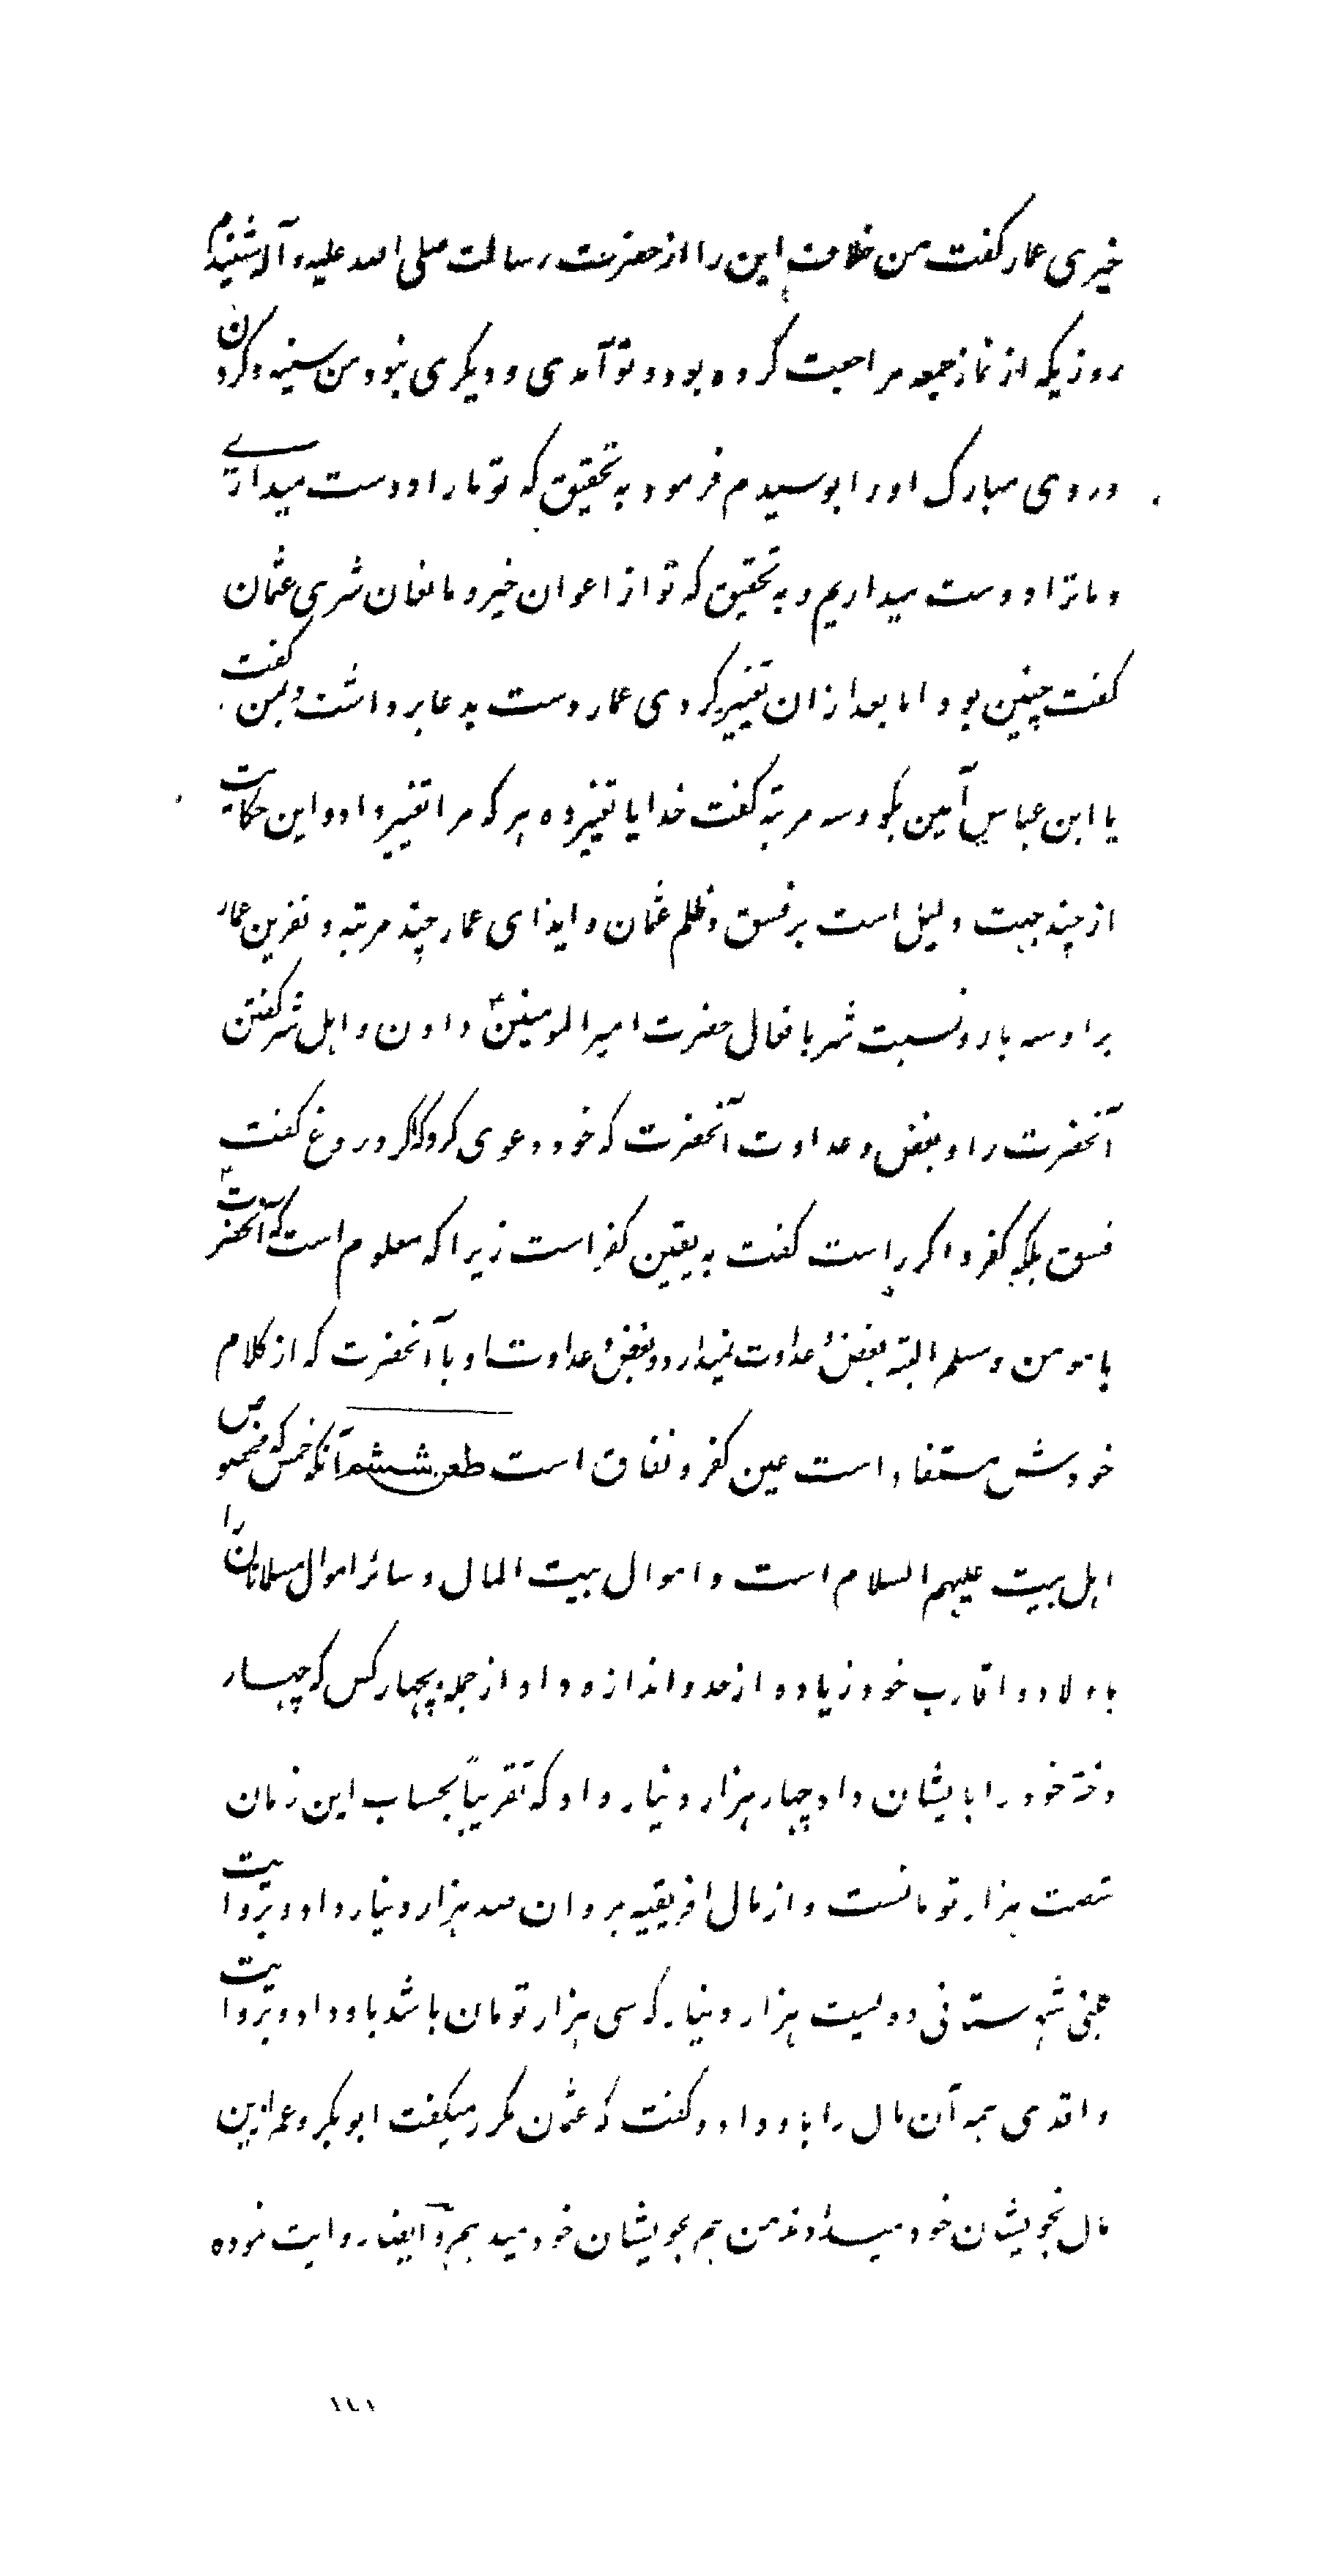 خیری عمار کفت من خلاف این را از حضرت رسالت صلی الله علیه و آله شنیدم
روزیکه از نماز جمعه مراجعت کرده بود و تو آمدی و دیکری نبود من سینه و کردن
و روی مبارک او را بوسیدم فرمود به تحقیق که تو ما را دوست میداری
و ما ترا دوست میداریم و به تحقیق که تو از اعوان خیر و مانعان شری عثمان
کفت چنین بود اما بعد از ان تغییر کردی عمار دست بدعا برداشت و بمن کفت
یا ابن عباس آمین بکو و سه مرتبه کفت خدایا تغییر ده هر که مرا تغییر داد و این حکایت
از چند جهت دلیل است بر فسق و ظلم عثمان و ایذای عمار چند مرتبه و نفرین عمار
بر او سه بار و نسبت شر بافعال حضرت امیرالمومنین ع دادن و اهل شر کفتن
آنحضرت را و بغض و عداوت آنحضرت که خود دعوی کرد که اکر دروغ کفت
فسق بلکه کفر و اکر راست کفت به یقین کفر است زیرا که معلوم است که آنحضرت
با مومن و مسلم البته بغض و عداوت نمیدارد و بغض و عداوت او با آنحضرت که از کلام
خودش مستفاد است عین کفر و نفاق است طعن ششم آنکه خمس که مخصوص
اهل بیت علیهم السلام است و اموال بیت المال و سائر اموال مسلمانان را
باولاد و اقارب خود زیاده از حد و اندازه داد از جمله بچهار کس که چهار
دختر خود را بایشان داد چهار هزار دینار داد که تقریباً بحساب این زمان
شصت هزار تومانست و از مال افریقیه بمروان صد هزار دینار داد و بروایت
کلبی شهرستانی دویست هزار دینار که سی هزار تومان باشد باو داد و بروایت
واقدی همه آن مال را باو داد و کفت که عثمان مکرر میکفت ابوبکر و عمر ازین
مال بخویشان خود میدادند من هم بخویشان خود میدهم و ایضا روایت نموده
١٤١